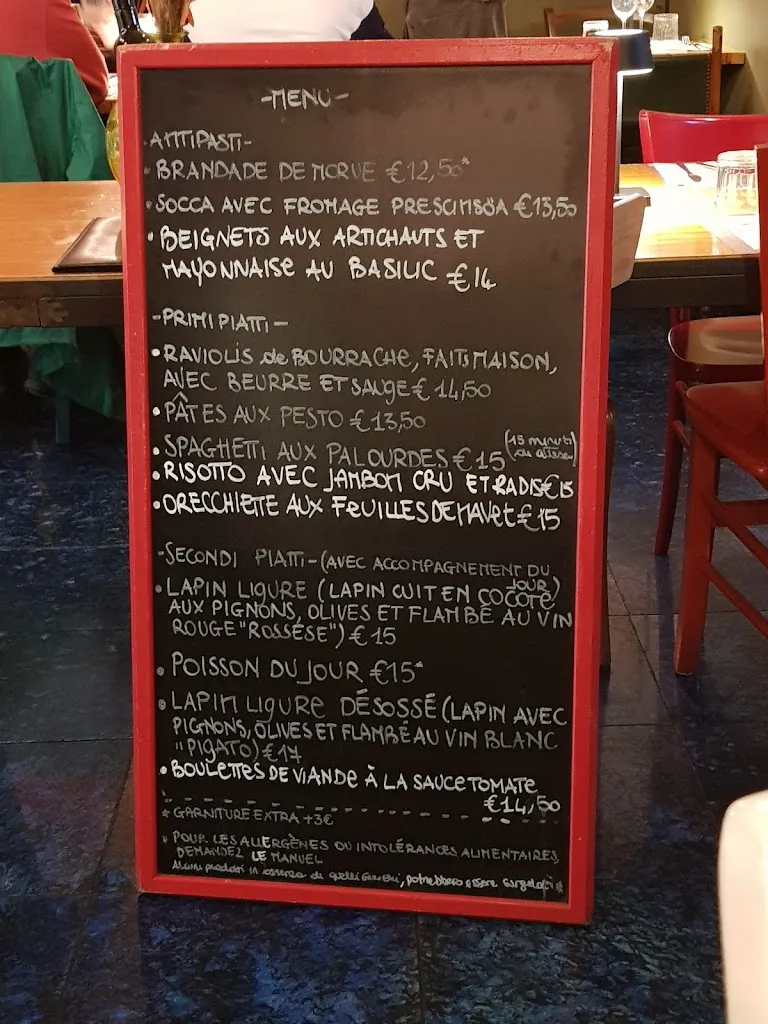 -MENU-
ANTIPASTI-
• BRANDADE DE MORUE €12,50*
• SOCCA AVEC FROMAGE PRESCINSÖA €13,50
• BEIGNETS AUX ARTICHAUTS ET
MAYONNAISE AU BASILIC €14
-PRIMI PIATTI-
• RAVIOLIS de BOURRACHE, FAITS MAISON,
AVEC BEURRE ET SAUGE € 14,50
• PÂTES AUX PESTO €13,50
• SPAGHETTI AUX PALOURDES €15 (15 minuti di attesa)
• RISOTTO AVEC JAMBON CRU ET RADIS €15
• ORECCHIETTE AUX FEUILLES DE NAVET €15
-SECONDI PIATTI-(AVEC ACCOMPAGNEMENT DU
JOUR)
• LAPIN LIGURE (LAPIN CUIT EN COCOTE
AUX PIGNONS, OLIVES ET FLAMBÉ AU VIN
ROUGE "ROSSESE") € 15
• POISSON DU JOUR €15*
• LAPIN LIGURE DÉSOSSÉ (LAPIN AVEC
PIGNONS, OLIVES ET FLAMBÉ AU VIN BLANC
"PIGATO") €17
• BOULETTES DE VIANDE À LA SAUCE TOMATE
€14,50
* GARNITURE EXTRA +3€
* POUR LES ALLERGÈNES OU INTOLÉRANCES ALIMENTAIRES,
DEMANDEZ LE MANUEL
Alcuni prodotti in assenza di quelli freschi, potrebbero essere surgelati *